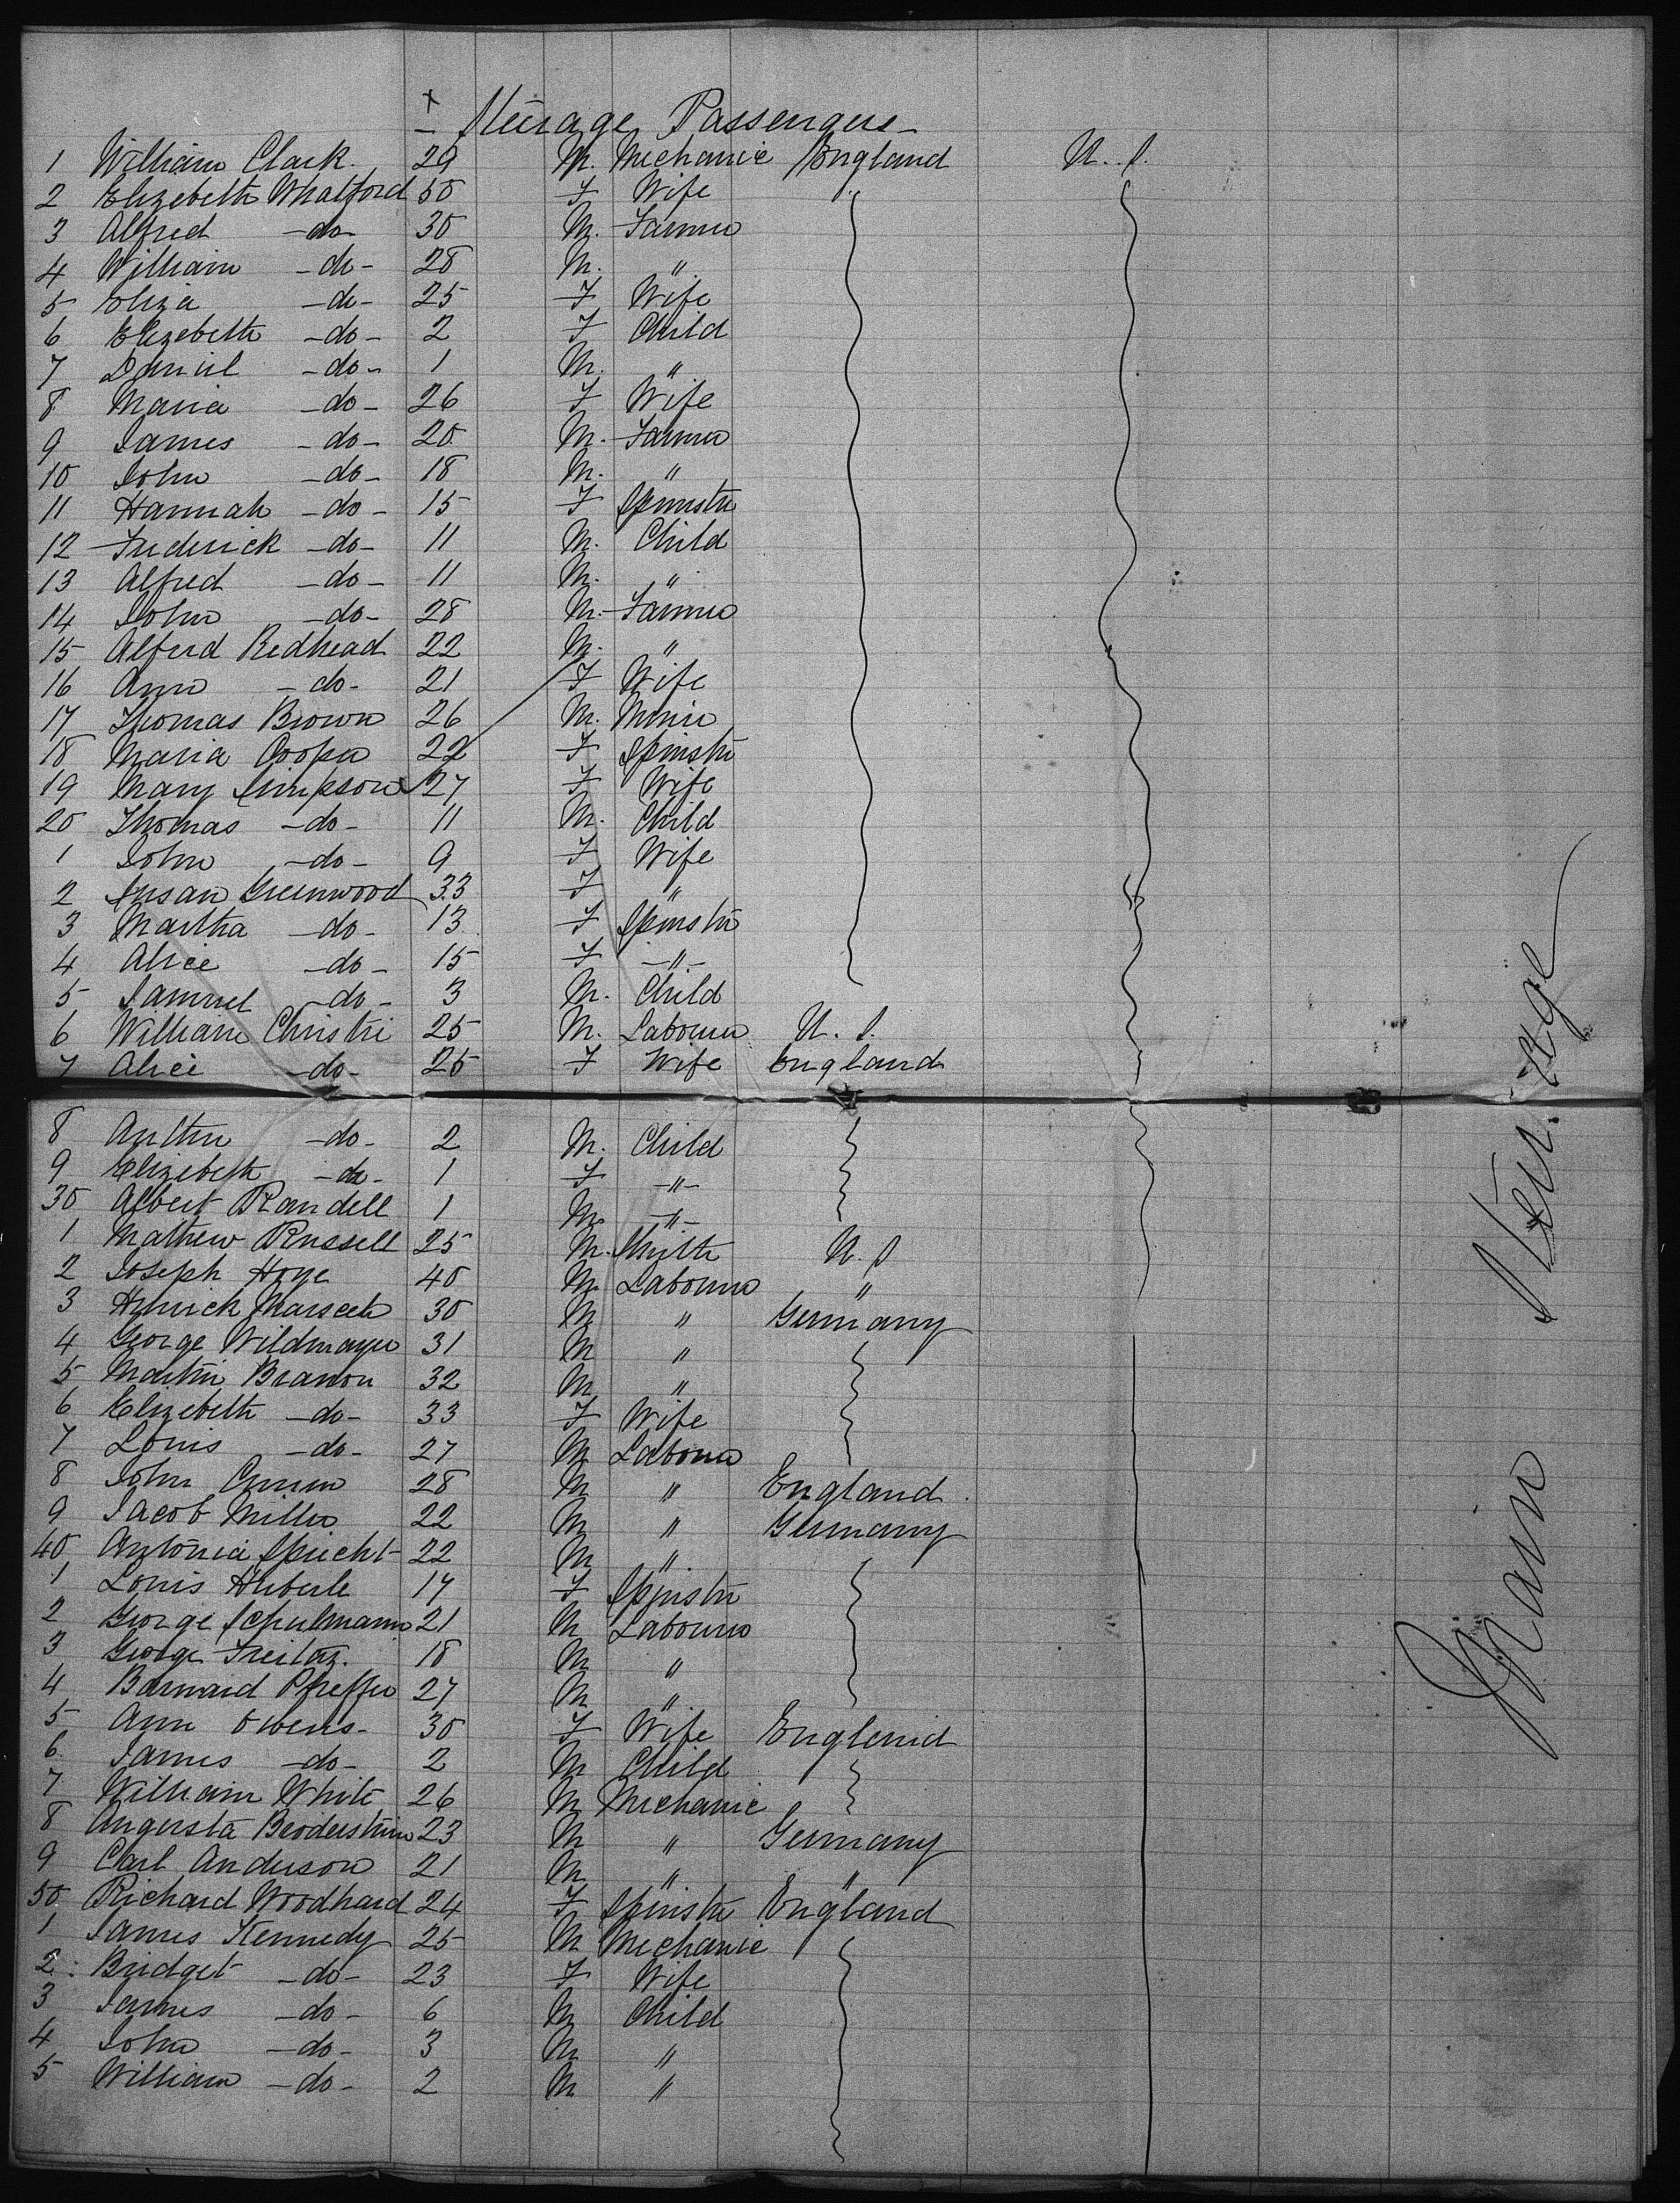 x
- Steerage Passengers -
1 William Clark. 29 M. Mechanic England U. S.
2 Elizebeth Whatford 50 F Wife
3 Alfred -do- 30 M. Farmer
4 William -do- 28 M. "
5 Eliza -do- 25 F Wife
6 Elizebeth -do- 2 F Child
7 Daniel -do- 1 M. "
8 Maria -do- 26 F Wife
9 James -do- 20 M. Farmer
10 John -do- 18 M. "
11 Hannah -do- 15 F Spinster
12 Frederick -do- 11 M. Child
13 Alfred -do- 11 M. "
14 John -do- 28 M. Farmer
15 Alfred Redhead 22 M. "
16 Ann -do- 21 F Wife
17 Thomas Brown 26 M. Miner
18 Maria Cooper 22 F Spinster
19 Mary Simpson 27 F Wife
20 Thomas -do- 11 M. Child
1 John -do- 9 F Wife
2 Susan Greenwood 33 F "
3 Martha -do- 13 F Spinster
4 Alice -do- 15 F -"-
5 Samuel -do- 3 M. Child
6 William Christie 25 M. Labourer U. S.
7 Alice -do- 25 F Wife England
8 Arthur -do- 2 M. Child
9 Elizebeth -do- 1 F -"-
30 Albert Randell 1 M. -"-
1 Mathew Russell 25 M. Smith U. S
2 Joseph Hoye 40 M. Labourer "
3 30 M " Germany
4 George Wildmayer 31 M "
5 Martin Branon 32 M "
6 Elizebeth -do- 33 F Wife
7 Louis -do- 27 M Labourer
8 John 28 M " England
9 Jacob Miller 22 M " Germany
40 Antonia Specht 22 M "
1 Louis Heberle 17 F Spinster
2 George Schulmann 21 M Labourer
3 George Freitag. 18 M "
4 Barnard Pfeffer 27 M "
5 Ann Owens- 30 F Wife England
6 James -do- 2 M Child
7 William White 26 M Mechanic
8 Augusta 23 M " Germany
9 Carl Anderson 21 M " "
50 Richard Woodhard 24 F Spinster England
1 James Kennedy 25 M Mechanic
2 Bridget -do- 23 F Wife
3 James -do- 6 M Child
4 John -do- 3 M "
5 William -do- 2 M "
Main Steerage